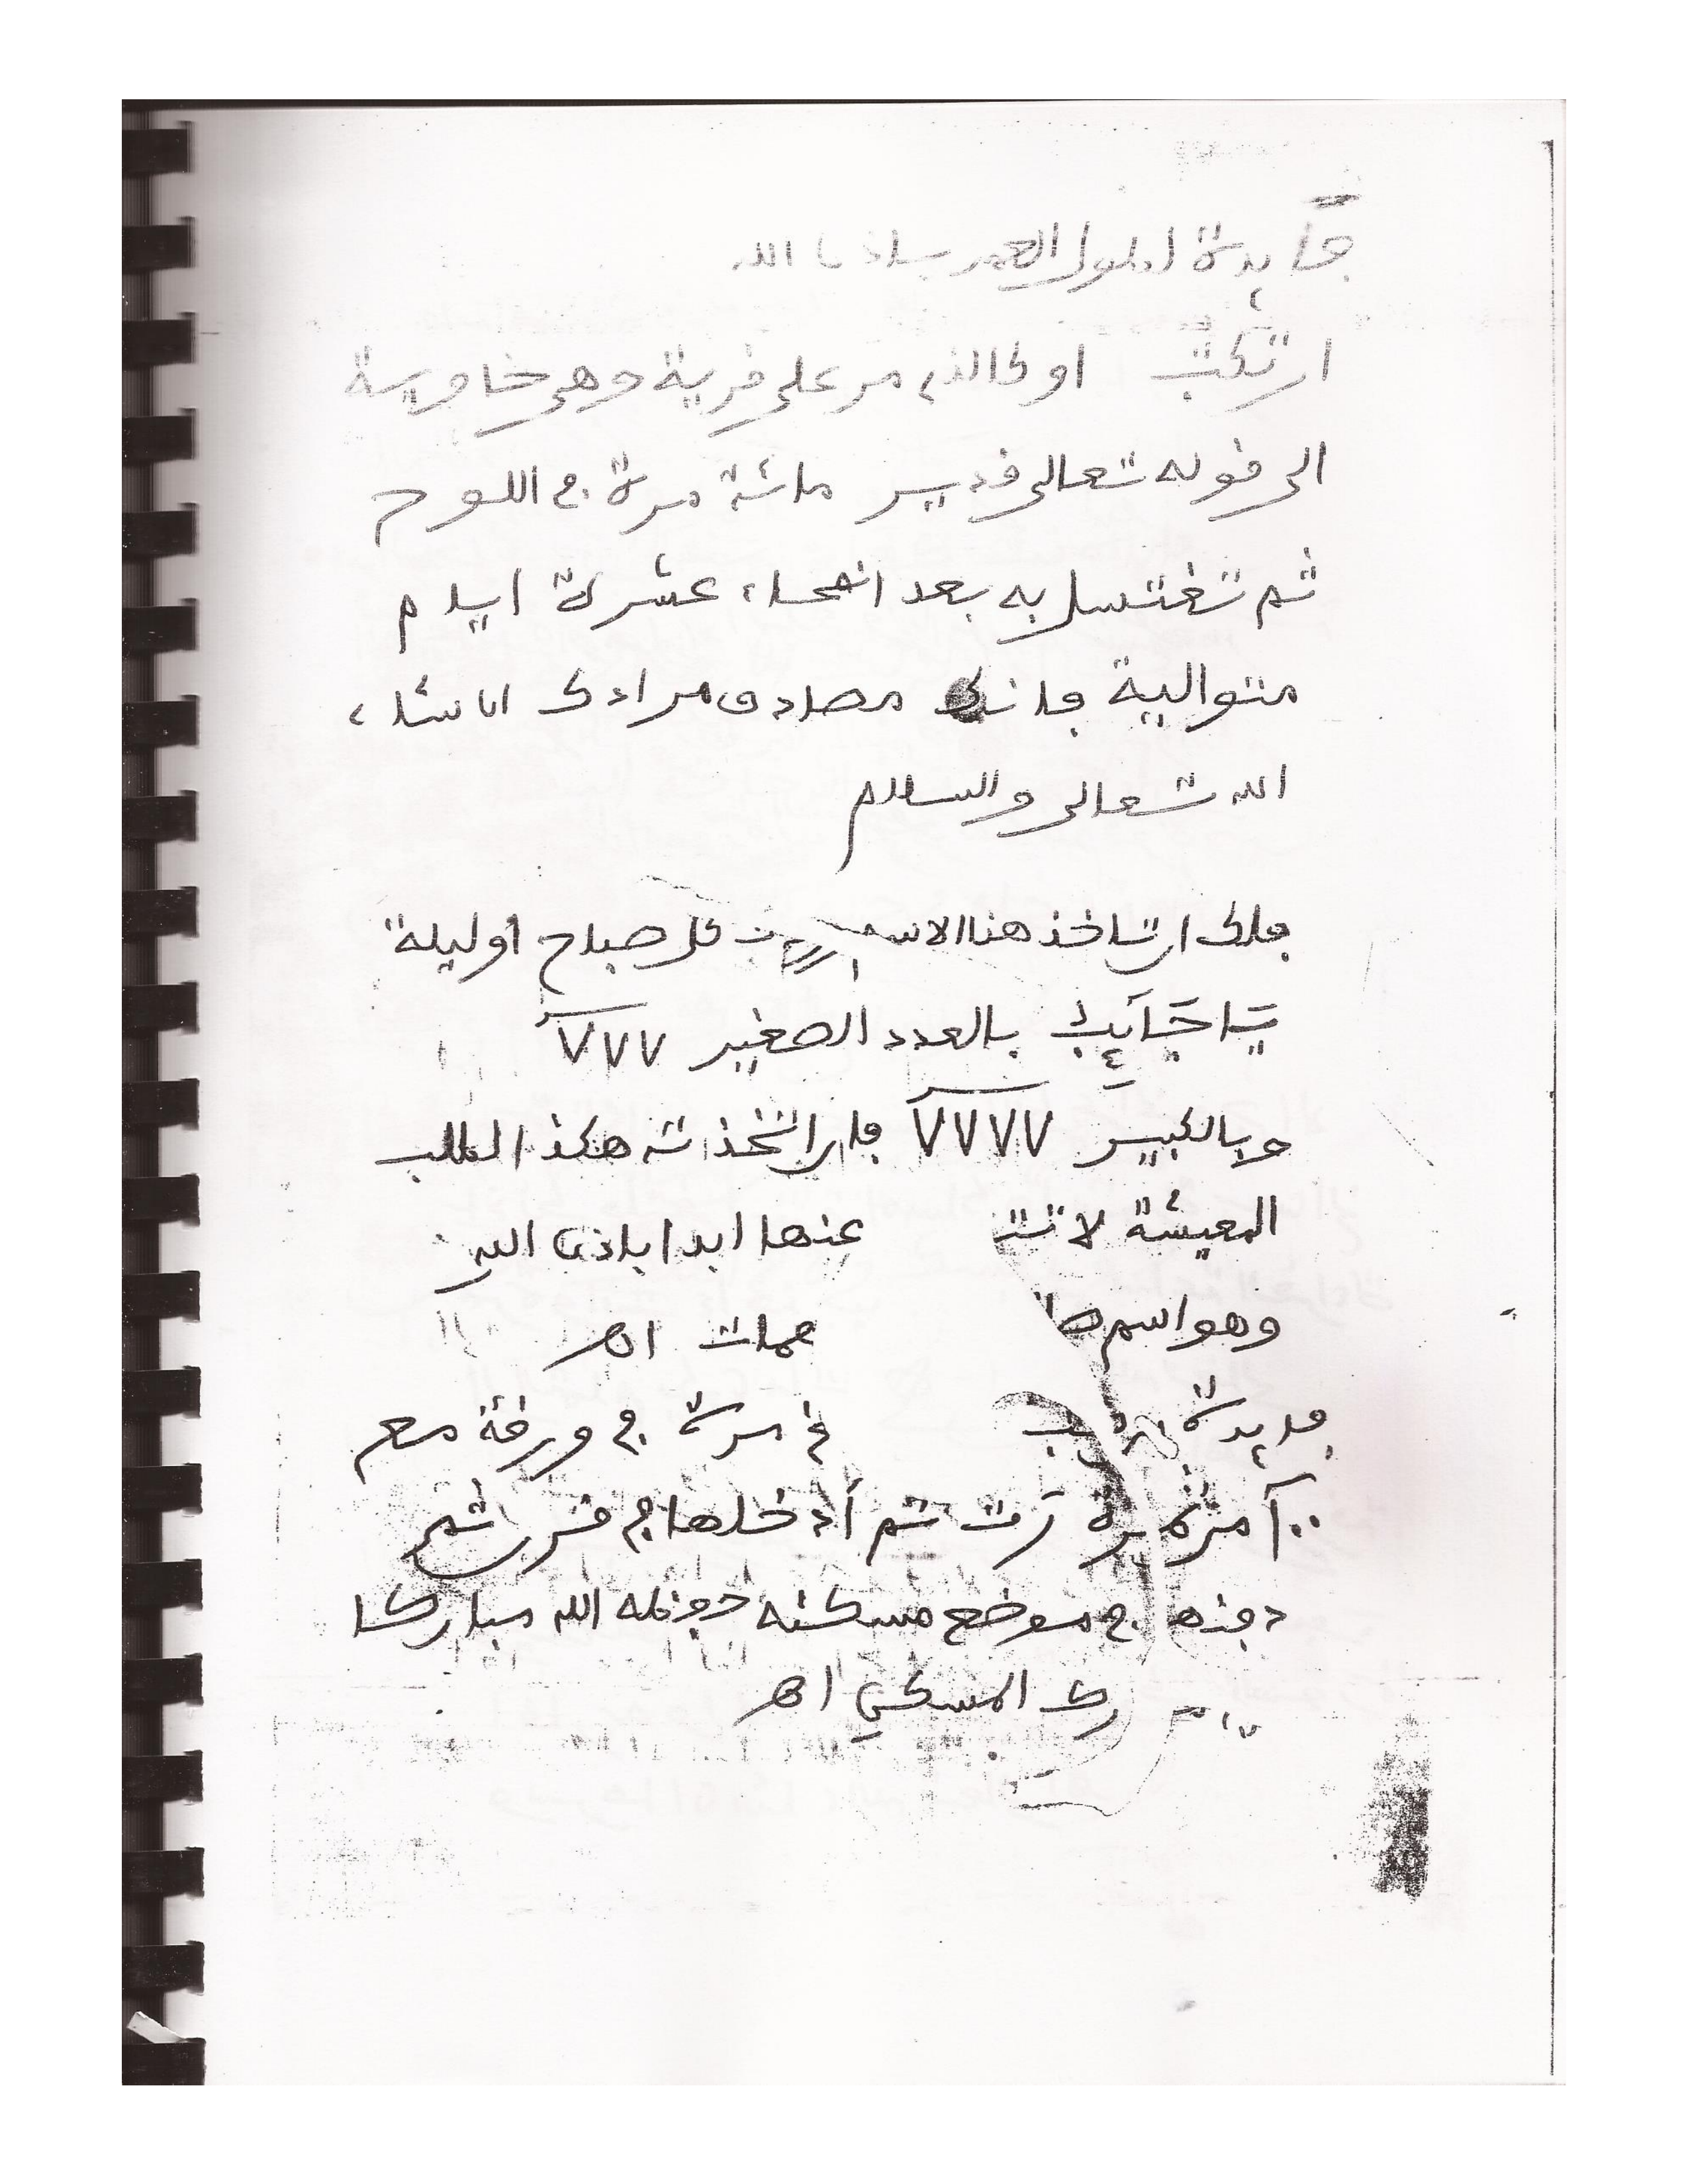 فايدة لطول العمر باذن الله
ان تكتب او كالذي مر على قرية وهي خاوية
الى قوله تعالى قدير مائة مرة في اللوح
ثم تغتسل به بعد انمحاء عشرة ايام
متوالية فانك مصادف مرادك ان شاء
الله تعالى والسلام
فلك ان تاخذ هذا الاسم كل صباح او ليلة
بالعدد الصغير ٧٧٧
وبالكبير ٧٧٧٧ فان اتخذته هكذا لطلب
المعيشة لا عنها ابدا باذن الله
وهو اسم اهـ
فايدة مرة في ورقة مع
ثم أدخلها في قرن ثم
دفنه في موضع مسكنه جعله الله مباركا
المسكن اهـ